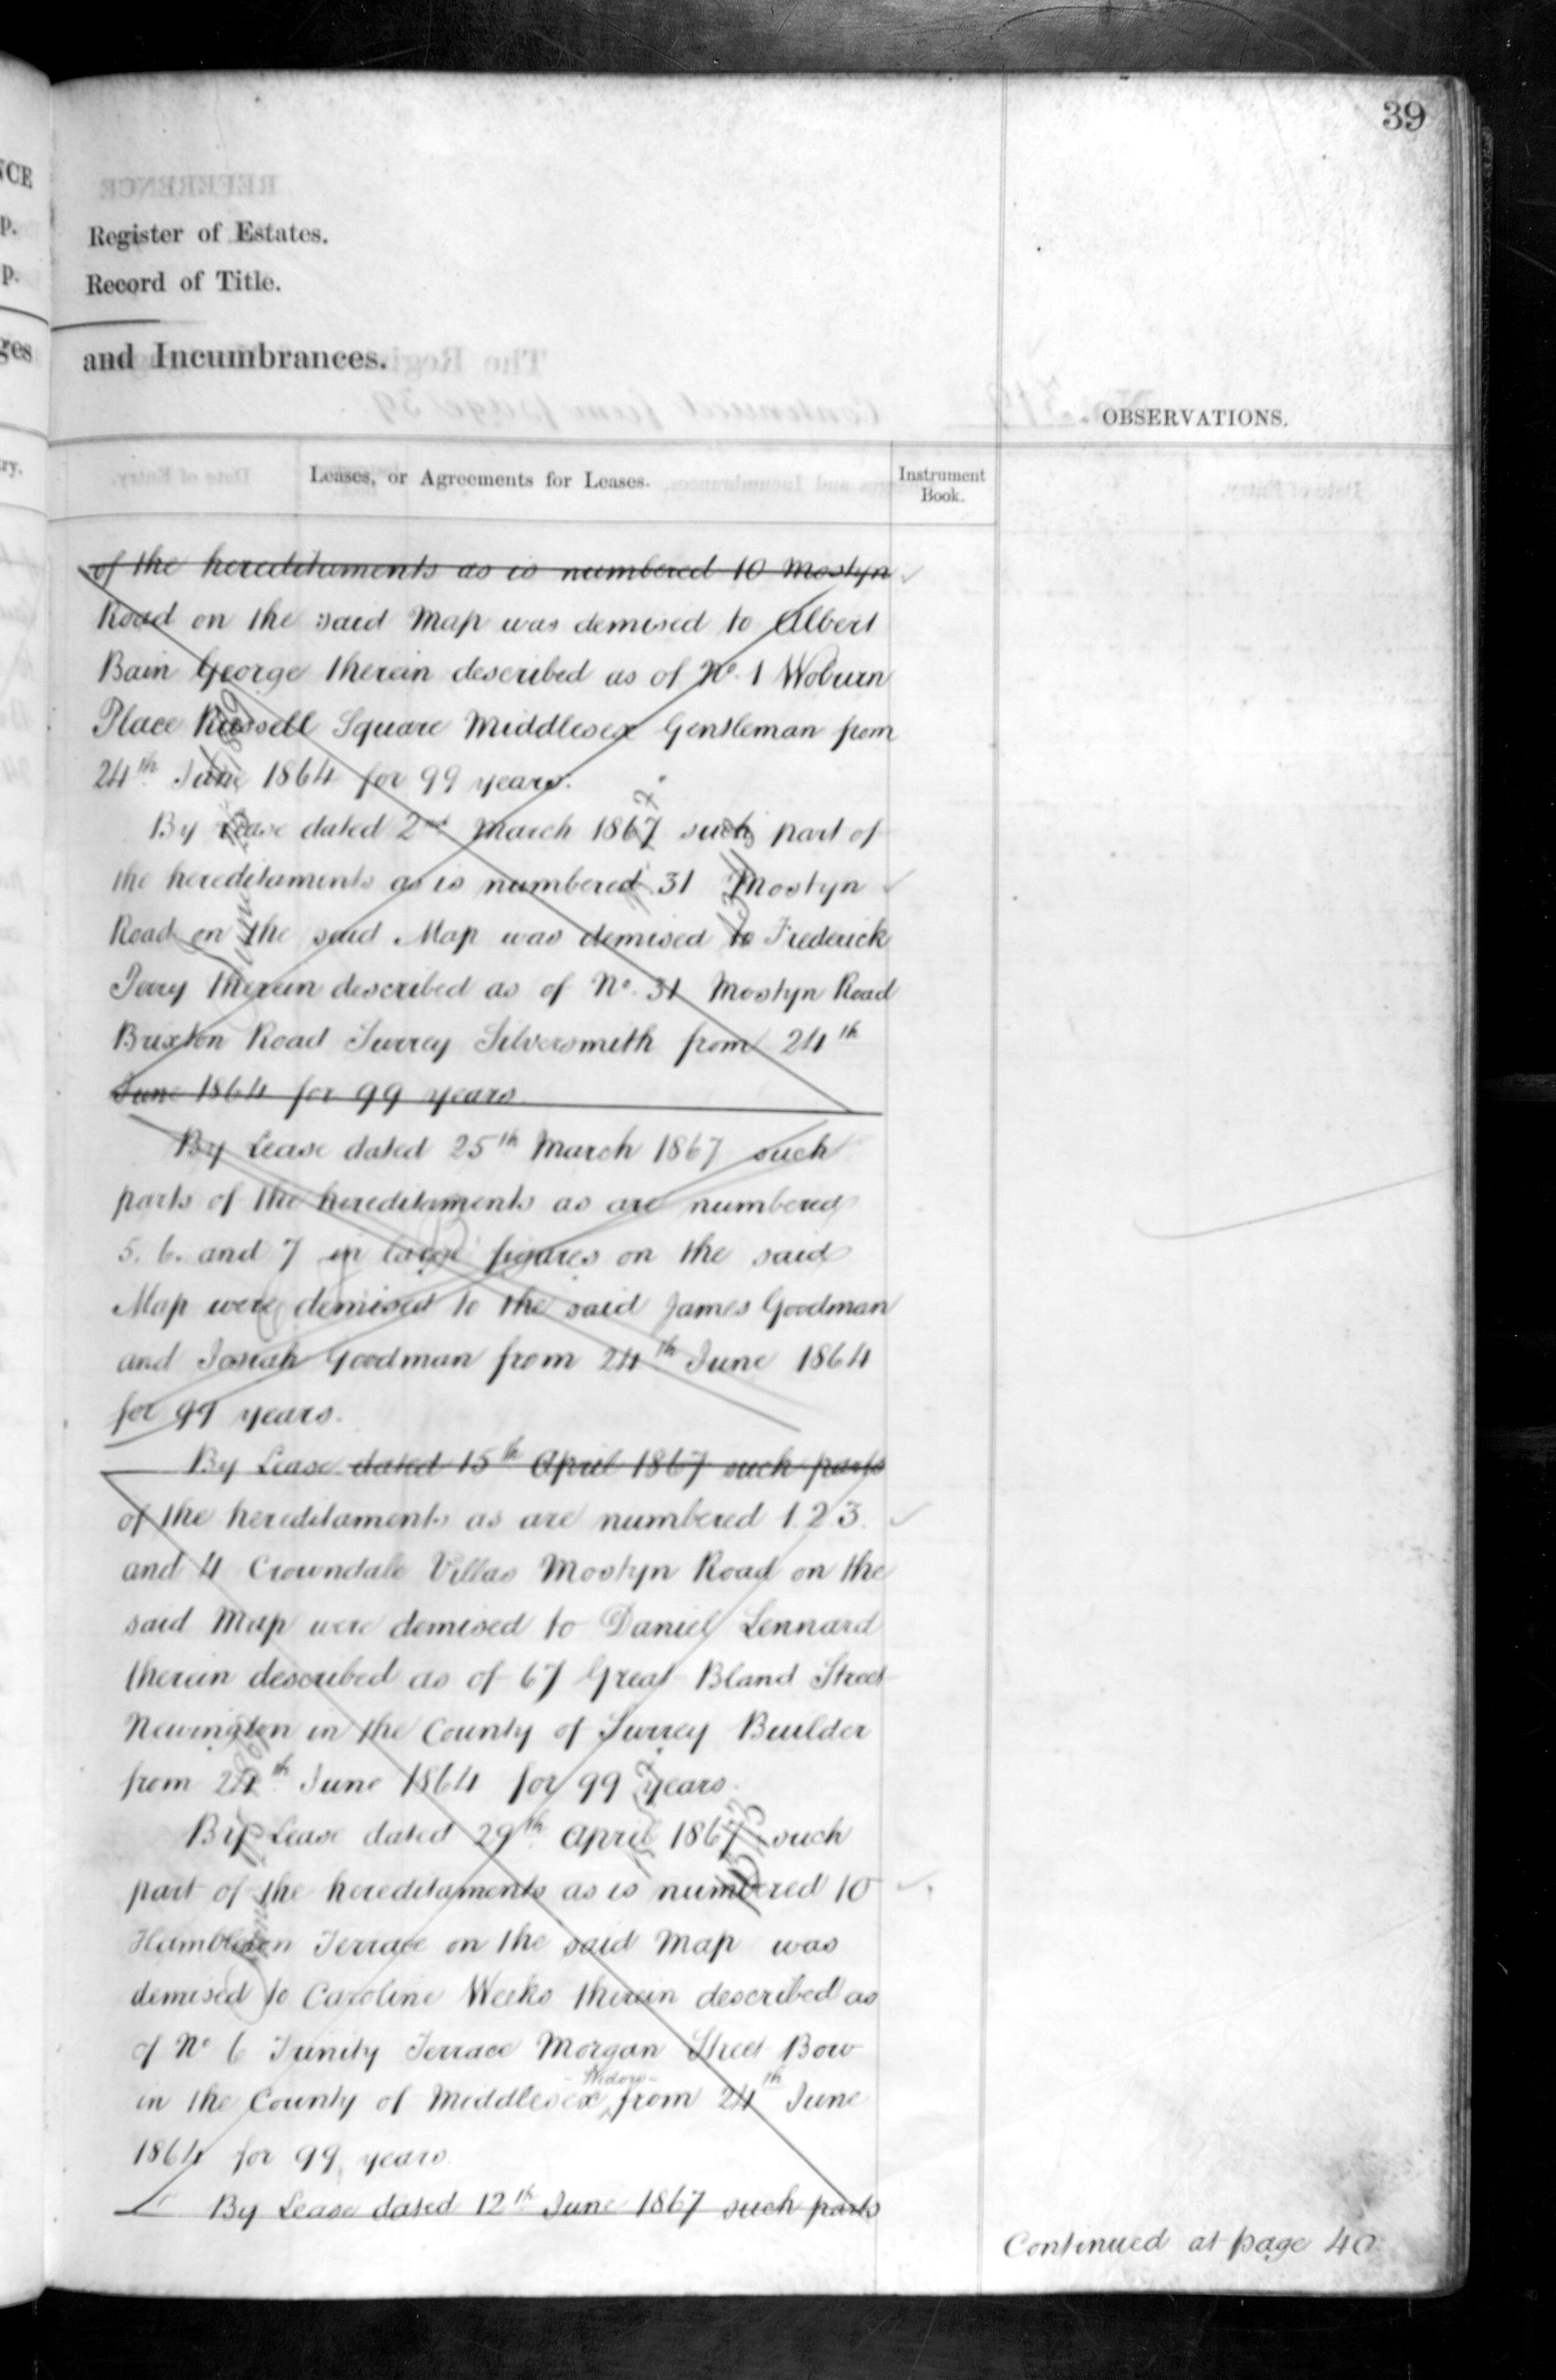 39
Register of Estates.
Record of Title.
and Incumbrances.
OBSERVATIONS.
Leases, or Agreements for Leases.
Instrument
Book.
of the hereditaments as is numbered 10 Mostyn
Road on the said Map was demised to Albert
Bain George therein described as of No. 1 Woburn
Place Russell Square Middlesex Gentleman from
24th June 1864 for 99 years.
By Lease dated 2nd March 1867 such part of
the hereditaments as is numbered 31 Mostyn
Road on the said Map was demised to Frederick
Terry therein described as of No. 31 Mostyn Road
Brixton Road Surrey Silversmith from 24th
June 1864 for 99 years
By Lease dated 25th March 1867 such
parts of the hereditaments as are numbered
5. 6. and 7 in large figures on the said
Map were demised to the said James Goodman
and Josiah Goodman from 24th June 1864
for 99 years.
By Lease dated 15th April 1867 such parts
of the hereditaments as are numbered 1. 2 3.
and 4 Crowndale Villas Mostyn Road on the
said Map were demised to Daniel Lennard
therein described as of 67 Great Bland Street
Newington in the County of Surrey Builder
from 24th June 1864 for 99 years.
By Lease dated 29th April 1867 such
part of the hereditaments as is numbered 10
Hambledon Terrace on the said Map was
demised to Caroline Weeks therein described as
of No 6 Trinity Terrace Morgan Street Bow
in the County of Middlesex Widow from 24th June
1864 for 99 years
By Lease dated 12th June 1867 such parts
Continued at page 40